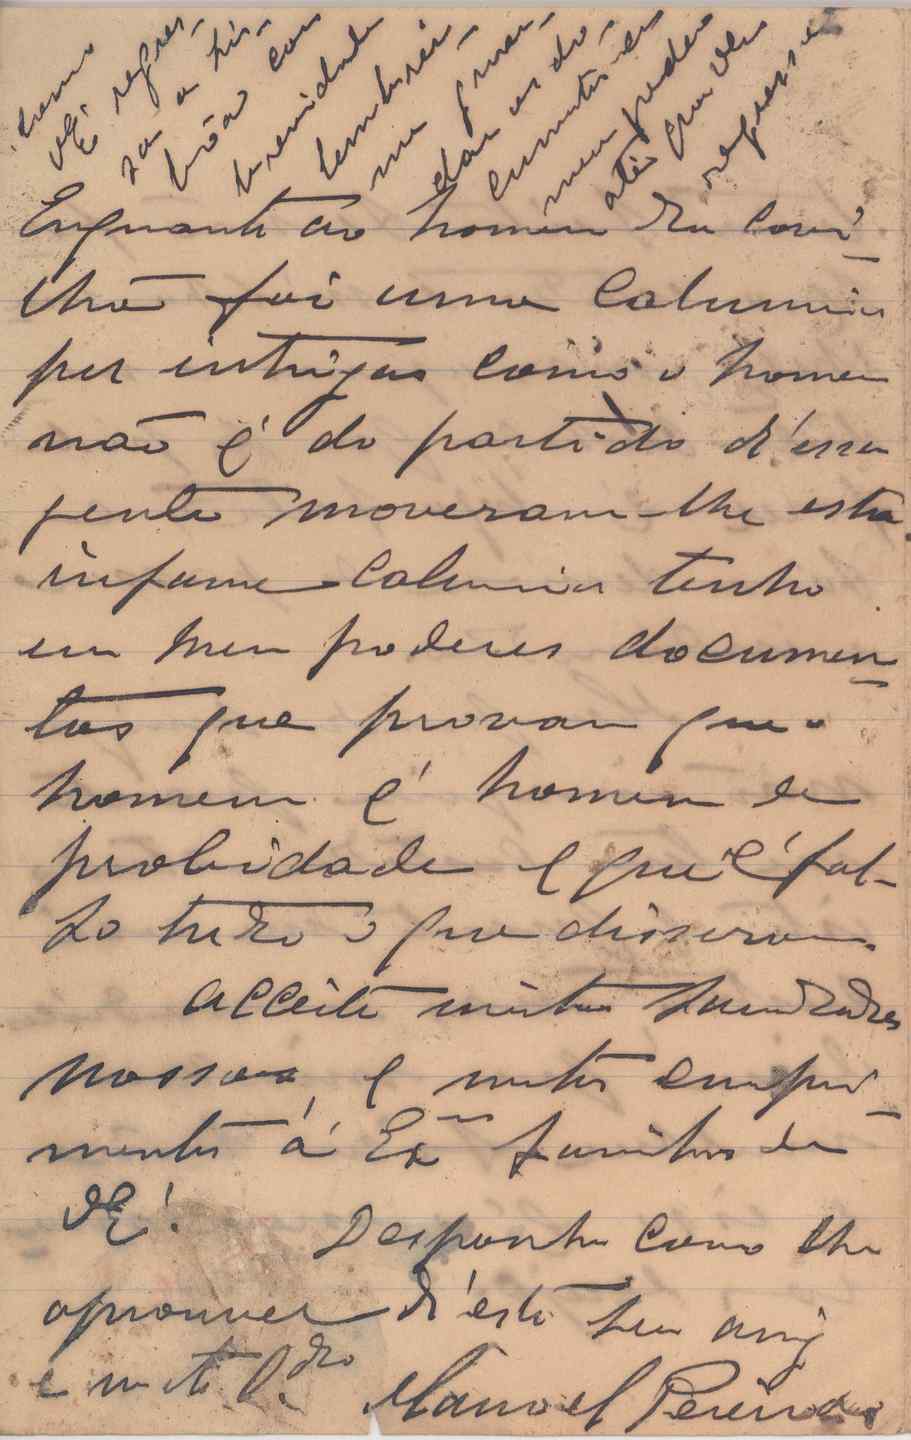 Como
VExª regres-
sa a Lis-
bôa com
brevidade
lembrei-
me guar-
dar os do-
cumentos em
meu poder
até que ven
regresse
Enquanto ao homem da Covi-
lhã foi uma calumnia
por intrigas como o homem
não é do partido d'essa
gente moveram-lhe esta
infame calumnia tenho
em meu poderes documen-
tos que provam que o
homem é homem de
probidade e que é fal-
so tudo o que disseram.
acceite muitas saudades
nossas e muitos cumpri-
mentos á Exmª familia de
VExª. Desponha como lhe
aprouver d'este seu amigº
e muitº Obrdº Manoel Pereira